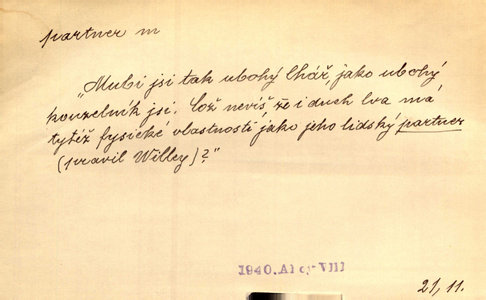 partner m
"Mubi jsi tak ubohý lhář, jako ubohý
kouzelník jsi. Což nevíš, že i duch lva má
tytéž fysické vlastnosti, jako jeho lidský partner
(pravil Willey)?"
1940. Al cy-VIII
21, 11.